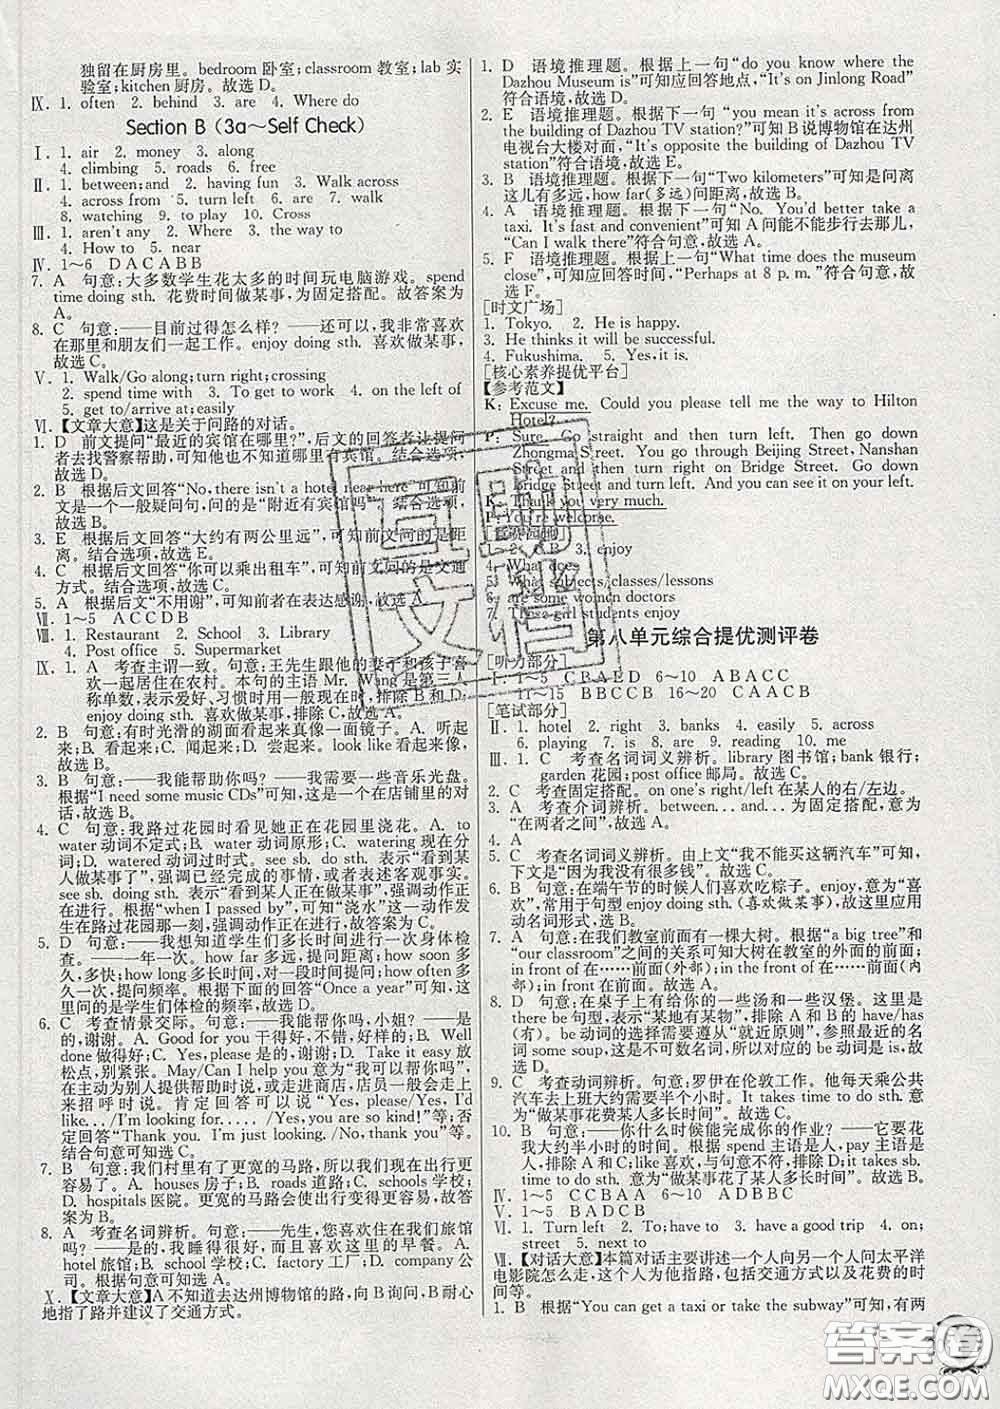 独留在厨房里。bedroom 卧室;classroom 教室;lab 实
验室;kitchen 厨房。故选 D。
Ⅸ. 1. often 2. behind 3. are 4. Where do
Section B (3a~Self Check)
Ⅰ. 1. air 2. money 3. along
4. climbing 5. roads 6. free
Ⅱ. 1. between;and 2. having fun 3. Walk across
4. across from 5. turn left 6. are 7. walk
8. watching 9. to play 10. Cross
Ⅲ. 1. aren't any 2. Where 3. the way to
4. How to 5. near
Ⅳ. 1~6 DACABB
7. A 句意:大多数学生花太多的时间玩电脑游戏。spend
time doing sth. 花费时间做某事,为固定搭配。故答案为
A。
8. C 句意:——目前过得怎么样? ——还可以,我非常喜欢
在那里和朋友们一起工作。enjoy doing sth. 喜欢做某事,
故选 C。
Ⅴ. 1. Walk/Go along;turn right;crossing
2. spend time with 3. To get to work 4. on the left of
5. get to/arrive at;easily
Ⅵ. 【文章大意】这是关于问路的对话。
1. D 前文提问“最近的宾馆在哪里?”,后文的回答者让提问
者去找警察帮助,可知他也不知道哪里有宾馆。结合选项,
故选 D。
2. B 根据后文回答“No, there isn't a hotel near here”可知前
文是一个一般疑问句,问的是“附近有宾馆吗”。结合选项,
故选 B。
3. E 根据后文回答“大约有两公里远”,可知前文问的是距
离。结合选项,故选 E。
4. C 根据后文回答“你可以乘出租车”,可知前文问的是交通
方式。结合选项,故选 C。
5. A 根据后文“不用谢”,可知前者在表达感谢,故选 A。
Ⅶ. 1~5 ACCDB
Ⅷ. 1. Restaurant 2. School 3. Library
4. Post office 5. Supermarket
Ⅸ. 1. A 考查主谓一致。句意:王先生跟他的妻子和孩子喜
欢一起居住在农村。本句的主语 Mr. Wang 是第三人
称单数,表示爱好、习惯时用一般现在时,排除 B 和 D;
enjoy doing sth. 喜欢做某事,排除 C,故选 A。
2. B 句意:有时光滑的湖面看起来真像一面镜子。A. 听起
来;B. 看起来;C. 闻起来;D. 尝起来。look like 看起来像,
故选 B。
3. B 句意:——我能帮助你吗? ——我需要一些音乐光盘。
根据“I need some music CDs”可知,这是一个在店铺里的对
话,故选 B。
4. C 句意:我路过花园时看见她正在花园里浇花。A. to
water 动词不定式;B. water 动词原形;C. watering 现在分
词;D. watered 动词过时式。see sb. do sth. 表示“看到某
人做某事了”,强调已经完成的事情,或者表述客观事实。
see sb. doing sth. 表示“看到某人正在做某事”,强调动作
正在进行。根据“when I passed by”,可知“浇水”这一动作发
生在路过花园那一刻,强调动作正在进行,故选 C。
5. D 句意:——我想知道学生们多长时间进行一次身体检
查。——一年一次。how far 多远,提问距离;how soon 多
久,多快;how long 多长时间,对一段时间提问;how often 多
久一次,提问频率。根据下面的回答“Once a year”可知,这
里问的是学生们体检的频率,故选 D。
6. C 考查情景交际。句意:——我能帮你吗,小姐? ——是
的,谢谢。A. Good for you 干得好,不错,好样的;B. Well
done 做得好;C. Yes, please 是的,谢谢;D. Take it easy 放
松点,别紧张。May/Can I help you 意为“我可以帮你吗”,
在主动为别人提供帮助时说,或走进商店,店员一般走上前
来招呼时说。肯定回答可以说“Yes, please/Yes, I'd
like.../I'm looking for...../Yes, you are so kind!”等;否
定回答“Thank you. I'm just looking./No, thank you”等。
结合句意可知选 C。
7. B 句意:我们村里有了更宽的马路,所以我们现在出行更
容易了。A. houses 房子;B. roads 道路;C. schools 学校;
D. hospitals 医院。更宽的马路会使出行变得更容易,故答
案为 B。
8. A 考查名词辨析。句意:——先生,您喜欢住在我们旅馆
吗? ——是的,我睡得很好,而且喜欢这里的早餐。A.
hotel 旅馆;B. school 学校;C. factory 工厂;D. company 公
司。根据句意可知选 A。
Ⅹ. 【文章大意】A 不知道去达州博物馆的路,向 B 询问,B 耐心
地指了路并建议了交通方式。
1. D 语境推理题。根据上一句“do you know where the
Dazhou Museum is”可知应回答地点,“It's on Jinlong Road”
符合语境,故选 D。
2. E 语境推理题。根据下一句“you mean it's across from
the building of Dazhou TV station?”可知 B 说博物馆在达州
电视台大楼对面,“It's opposite the building of Dazhou TV
station”符合语境,故选 E。
3. B 语境推理题。根据下一句“Two kilometers”可知问离
这儿有多远,how far(多远)问距离,故选 B。
4. A 语境推理题。根据下一句“No. You'd better take a
taxi. It's fast and convenient”可知 A 问能不能步行去那儿,
“Can I walk there”符合句意,故选 A。
5. F 语境推理题。根据上一句“What time does the museum
close”,可知应回答时间,“Perhaps at 8 p. m.”符合句意,故
选 F。
[时文广场]
1. Tokyo. 2. He is happy.
3. He thinks it will be successful.
4. Fukushima. 5. Yes, it is.
[核心素养提优平台]
【参考范文】
K: Excuse me. Could you please tell me the way to Hilton
Hotel?
P: Sure. Go straight and then turn left. Then go down
Zhongma Street. You go through Beijing Street, Nanshan
Street and then turn right on Bridge Street. Go down
bridge Street and turn left. And you can see it on your left.
K: Thank you very much.
P: You're welcome.
1~2 CB 3. enjoy
4. What does
5. What subjects/classes/lessons
6. are some women doctors
7. These girl students enjoy
第八单元综合提优测评卷
[听力部分]
Ⅰ. 1~5 CBAED 6~10 ABACC
11~15 BBCCB 16~20 CAACB
[笔试部分]
Ⅱ. 1. hotel 2. right 3. banks 4. easily 5. across
6. playing 7. is 8. are 9. reading 10. me
Ⅲ. 1. C 考查名词词义辨析。library 图书馆;bank 银行;
garden 花园;post office 邮局。故选 C。
2. C 考查固定搭配。on one's right/left 在某人的右/左边。
3. A 考查介词辨析。between...and...为固定搭配,意为
“在两者之间”,故选 A。
4. A
5. C 考查名词词义辨析。由上文“我不能买这辆汽车”可知,
下文是“因为我没有很多钱”。故选 C。
6. B 句意:在端午节的时候人们喜欢吃粽子。enjoy,意为“喜
欢”,常用于句型 enjoy doing sth.(喜欢做某事),故这里应用
动名词形式,选 B。
7. A 句意:在我们教室前面有一棵大树。根据“a big tree”和
“our classroom”之间的关系可知大树在教室的外面的前面,
in front of 在……前面(外部);in the front of 在……前面(内
部);in front 在前面。故选 A。
8. D 句意:在桌子上有给你的一些汤和一些汉堡。这里是
there be 句型,表示“某地有某物”,排除 A 和 B 的 have/has
(有)。be 动词的选择需要遵从“就近原则”,参照最近的名
词 some soup,是不可数名词,所以对应的 be 动词是 is。故
选 D。
9. C 考查动词辨析。句意:罗伊在伦敦工作。他每天乘公共
汽车去上班大约需要半个小时。It takes time to do sth. 意
为“做某事花费某人多长时间”。故选 C。
10. B 句意:——你什么时候能完成你的作业? ——它要花
我大约半小时的时间。根据 spend 主语是人,pay 主语是
人,排除 A 和 C;like 喜欢,与句意不符,排除 D;it takes sb.
time to do sth. 意为“做某事花了某人多长时间”。故选 B。
Ⅳ. 1~5 CCBAA 6~10 ADBBC
Ⅴ. 1~5 BADCB
Ⅵ. 1. Turn left 2. To;have to 3. have a good trip 4. on;
street 5. next to
Ⅶ. 【对话大意】本篇对话主要讲述一个人向另一个人问太平洋
电影院怎么走,这个人为他指路,包括交通方式以及花费的时
间等。
1. B 根据“You can get a taxi or take the subway”可知,有两
答案圈
MXQE.COM